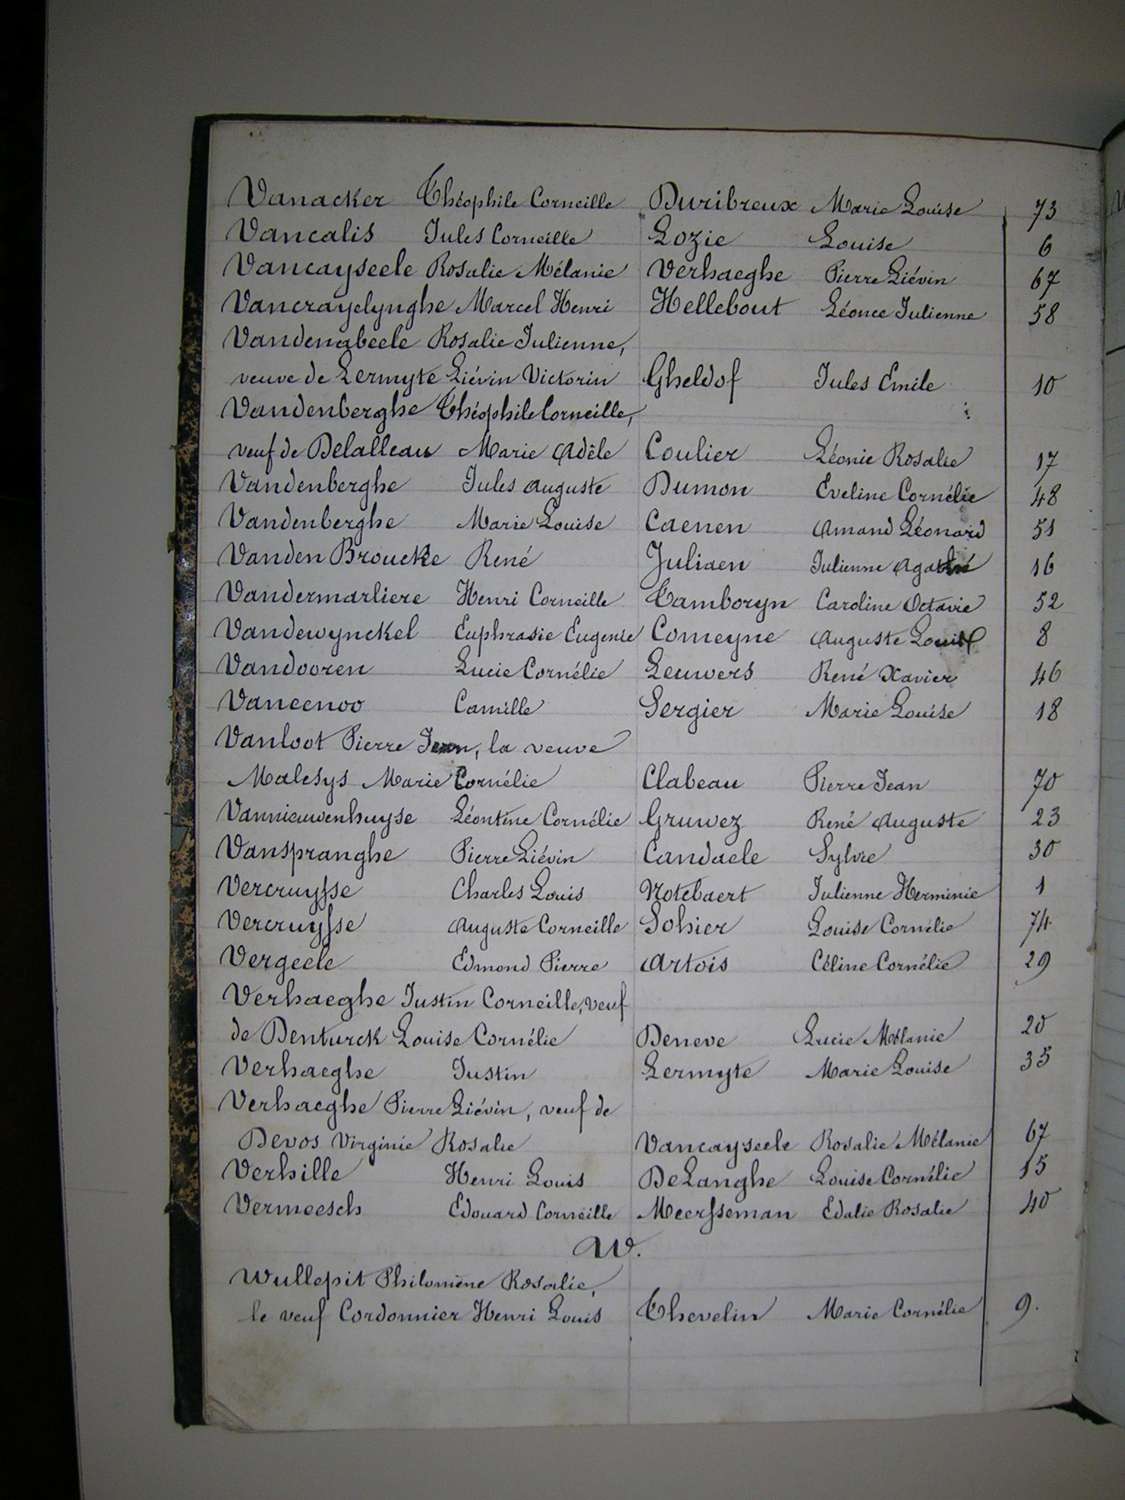 Vanacker Théophile Corneille Duribreux Marie Louise 73
Vancalis Jules Corneille Lozie Louise 6
Vancayseele Rosalie Mélanie Verhaeghe Pierre Liévin 67
Vancrayelynghe Marcel Henri Hellebout Léonce Julienne 58
Vandenabeele Rosalie Julienne,
veuve de Lermyte Liévin Victorin Gheldof Jules Emile 10
Vandenberghe Théophile Corneille,
veuf de Delalleau Marie Adèle Coulier Léonie Rosalie 17
Vandenberghe Jules Auguste Dumon Eveline Cornélie 48
Vandenberghe Marie Louise Caenen Amand Léonard 51
Vanden Broucke René Juliaen Julienne 16
Vandermarliere Henri Corneille Tamboryn Caroline Octavie 52
Vandewynckel Euphrasie Eugenie Comeyne Auguste Louis 8
Vandooren Lucie Cornélie Leuwers René Xavier 46
Vaneenoo Camille Sergier Marie Louise 18
Vanloot Pierre Jean, la veuve
Malesys Marie Cornélie Clabeau Pierre Jean 70
Vannieuwenhuyse Léontine Cornélie Gruwez René Auguste 23
Vanspranghe Pierre Liévin Candaele Sylvie 30
Vercruysse Charles Louis Notebaert Julienne Herminie 1
Vercruysse Auguste Corneille Sohier Louise Cornélie 74
Vergeele Edmond Pierre Artois Céline Cornélie 29
Verhaeghe Justin Corneille, veuf
de Denturck Louise Cornélie Deneve Lucie Mélanie 20
Verhaeghe Justin Lermyte Marie Louise 35
Verhaeghe Pierre Liévin, veuf de
Devos Virginie Rosalie Vancayseele Rosalie Mélanie 67
Verhille Henri Louis DeLanghe Louise Cornélie 15
Vermeesch Edouard Corneille Meersseman Edalie Rosalie 40
W.
Wullepit Philomène Rosalie,
le veuf Cordonnier Henri Louis Thevelin Marie Cornélie 9.